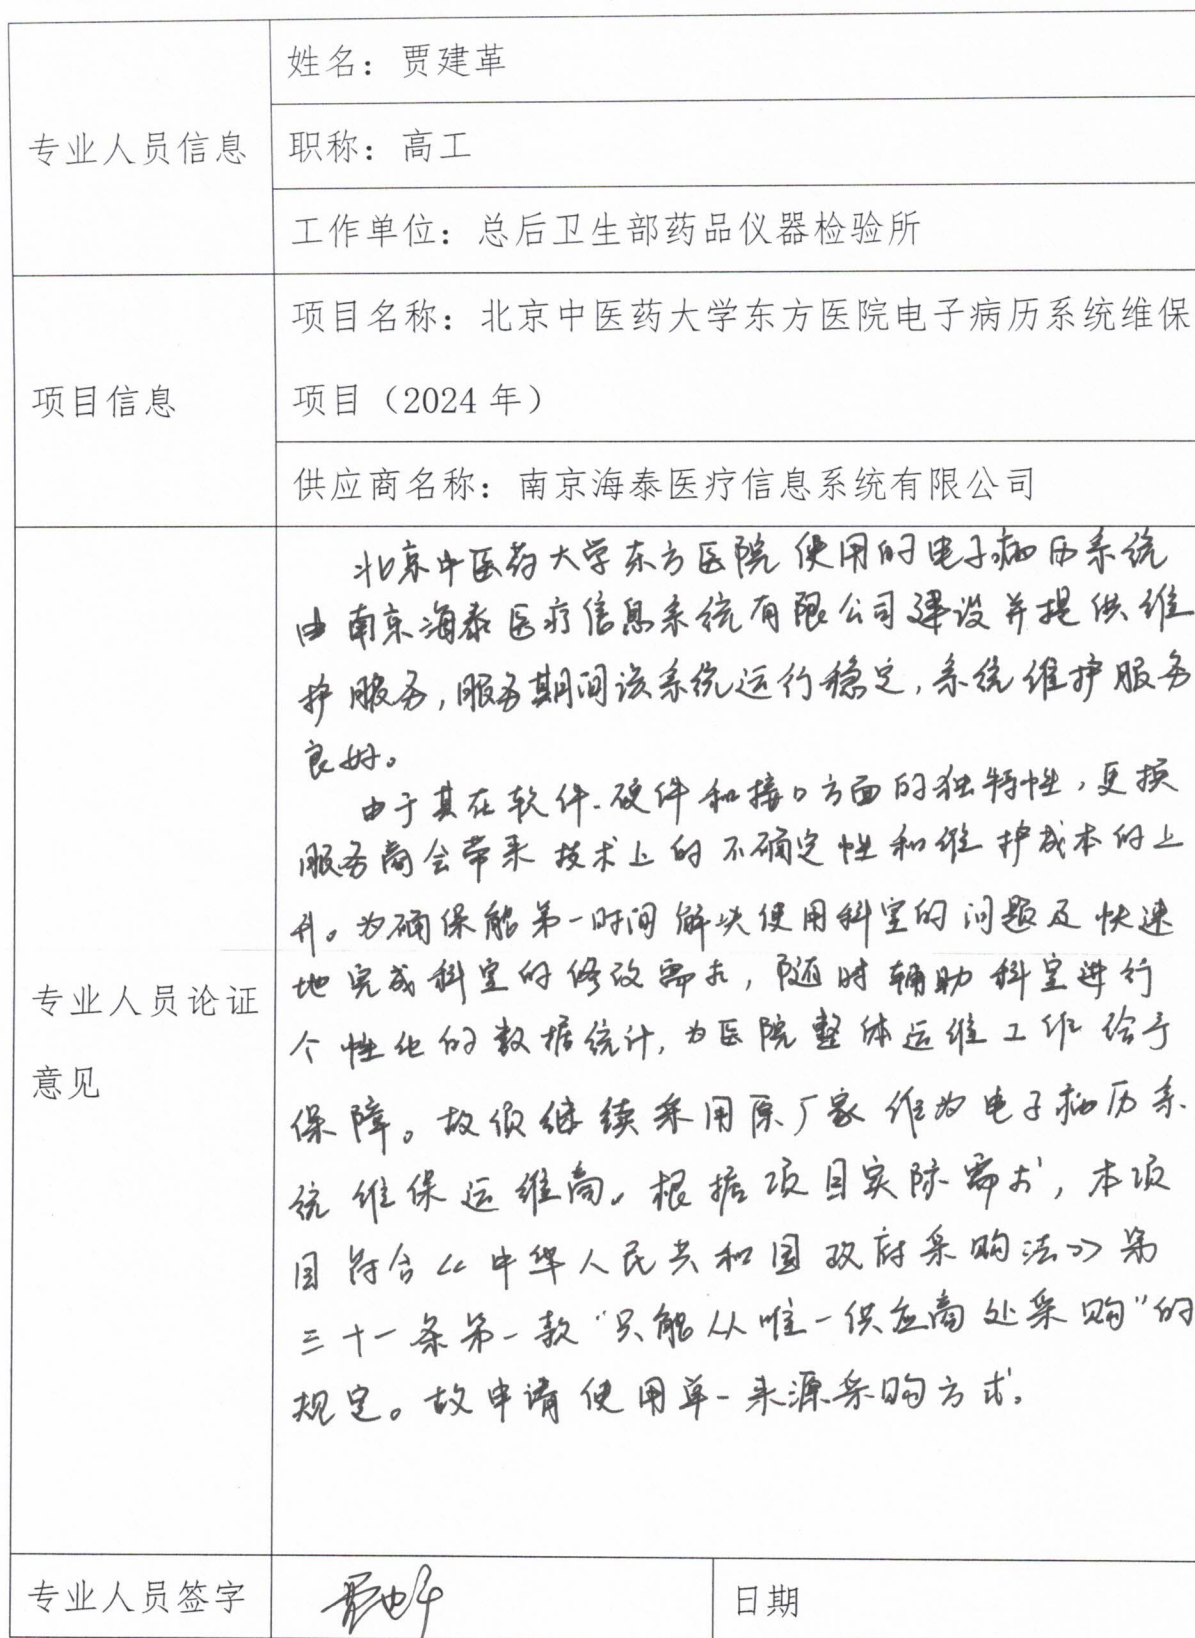 姓名：贾建革
专业人员信息
职称：高工
工作单位：总后卫生部药品仪器检验所
项目名称：北京中医药大学东方医院电子病历系统维保
项目信息
项目（2024 年）
供应商名称：南京海泰医疗信息系统有限公司
北京中医药大学东方医院使用的电子病历系统
由南京海泰医疗信息系统有限公司建设并提供维
护服务，服务期间该系统运行稳定，系统维护服务
良好。
由于其在软件、硬件和接口方面的独特性，更换
服务商会带来技术上的不确定性和维护成本的上
升。为确保能第一时间解决使用科室的问题及快速
地完成科室的修改需求，随时辅助科室进行
个性化的数据统计，为医院整体运维工作给予
保障。故须继续采用原厂家作为电子病历系
统维保运维商。根据项目实际需求，本项
目符合《中华人民共和国政府采购法》第
三十一条第一款“只能从唯一供应商处采购”的
规定。故申请使用单一来源采购方式。
专业人员论证
意见
专业人员签字
日期